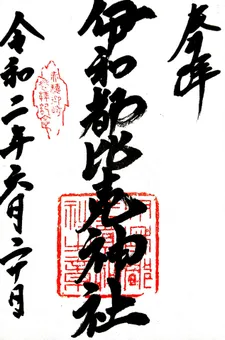 奉拝
伊和都比売神社
令和二年六月二十日